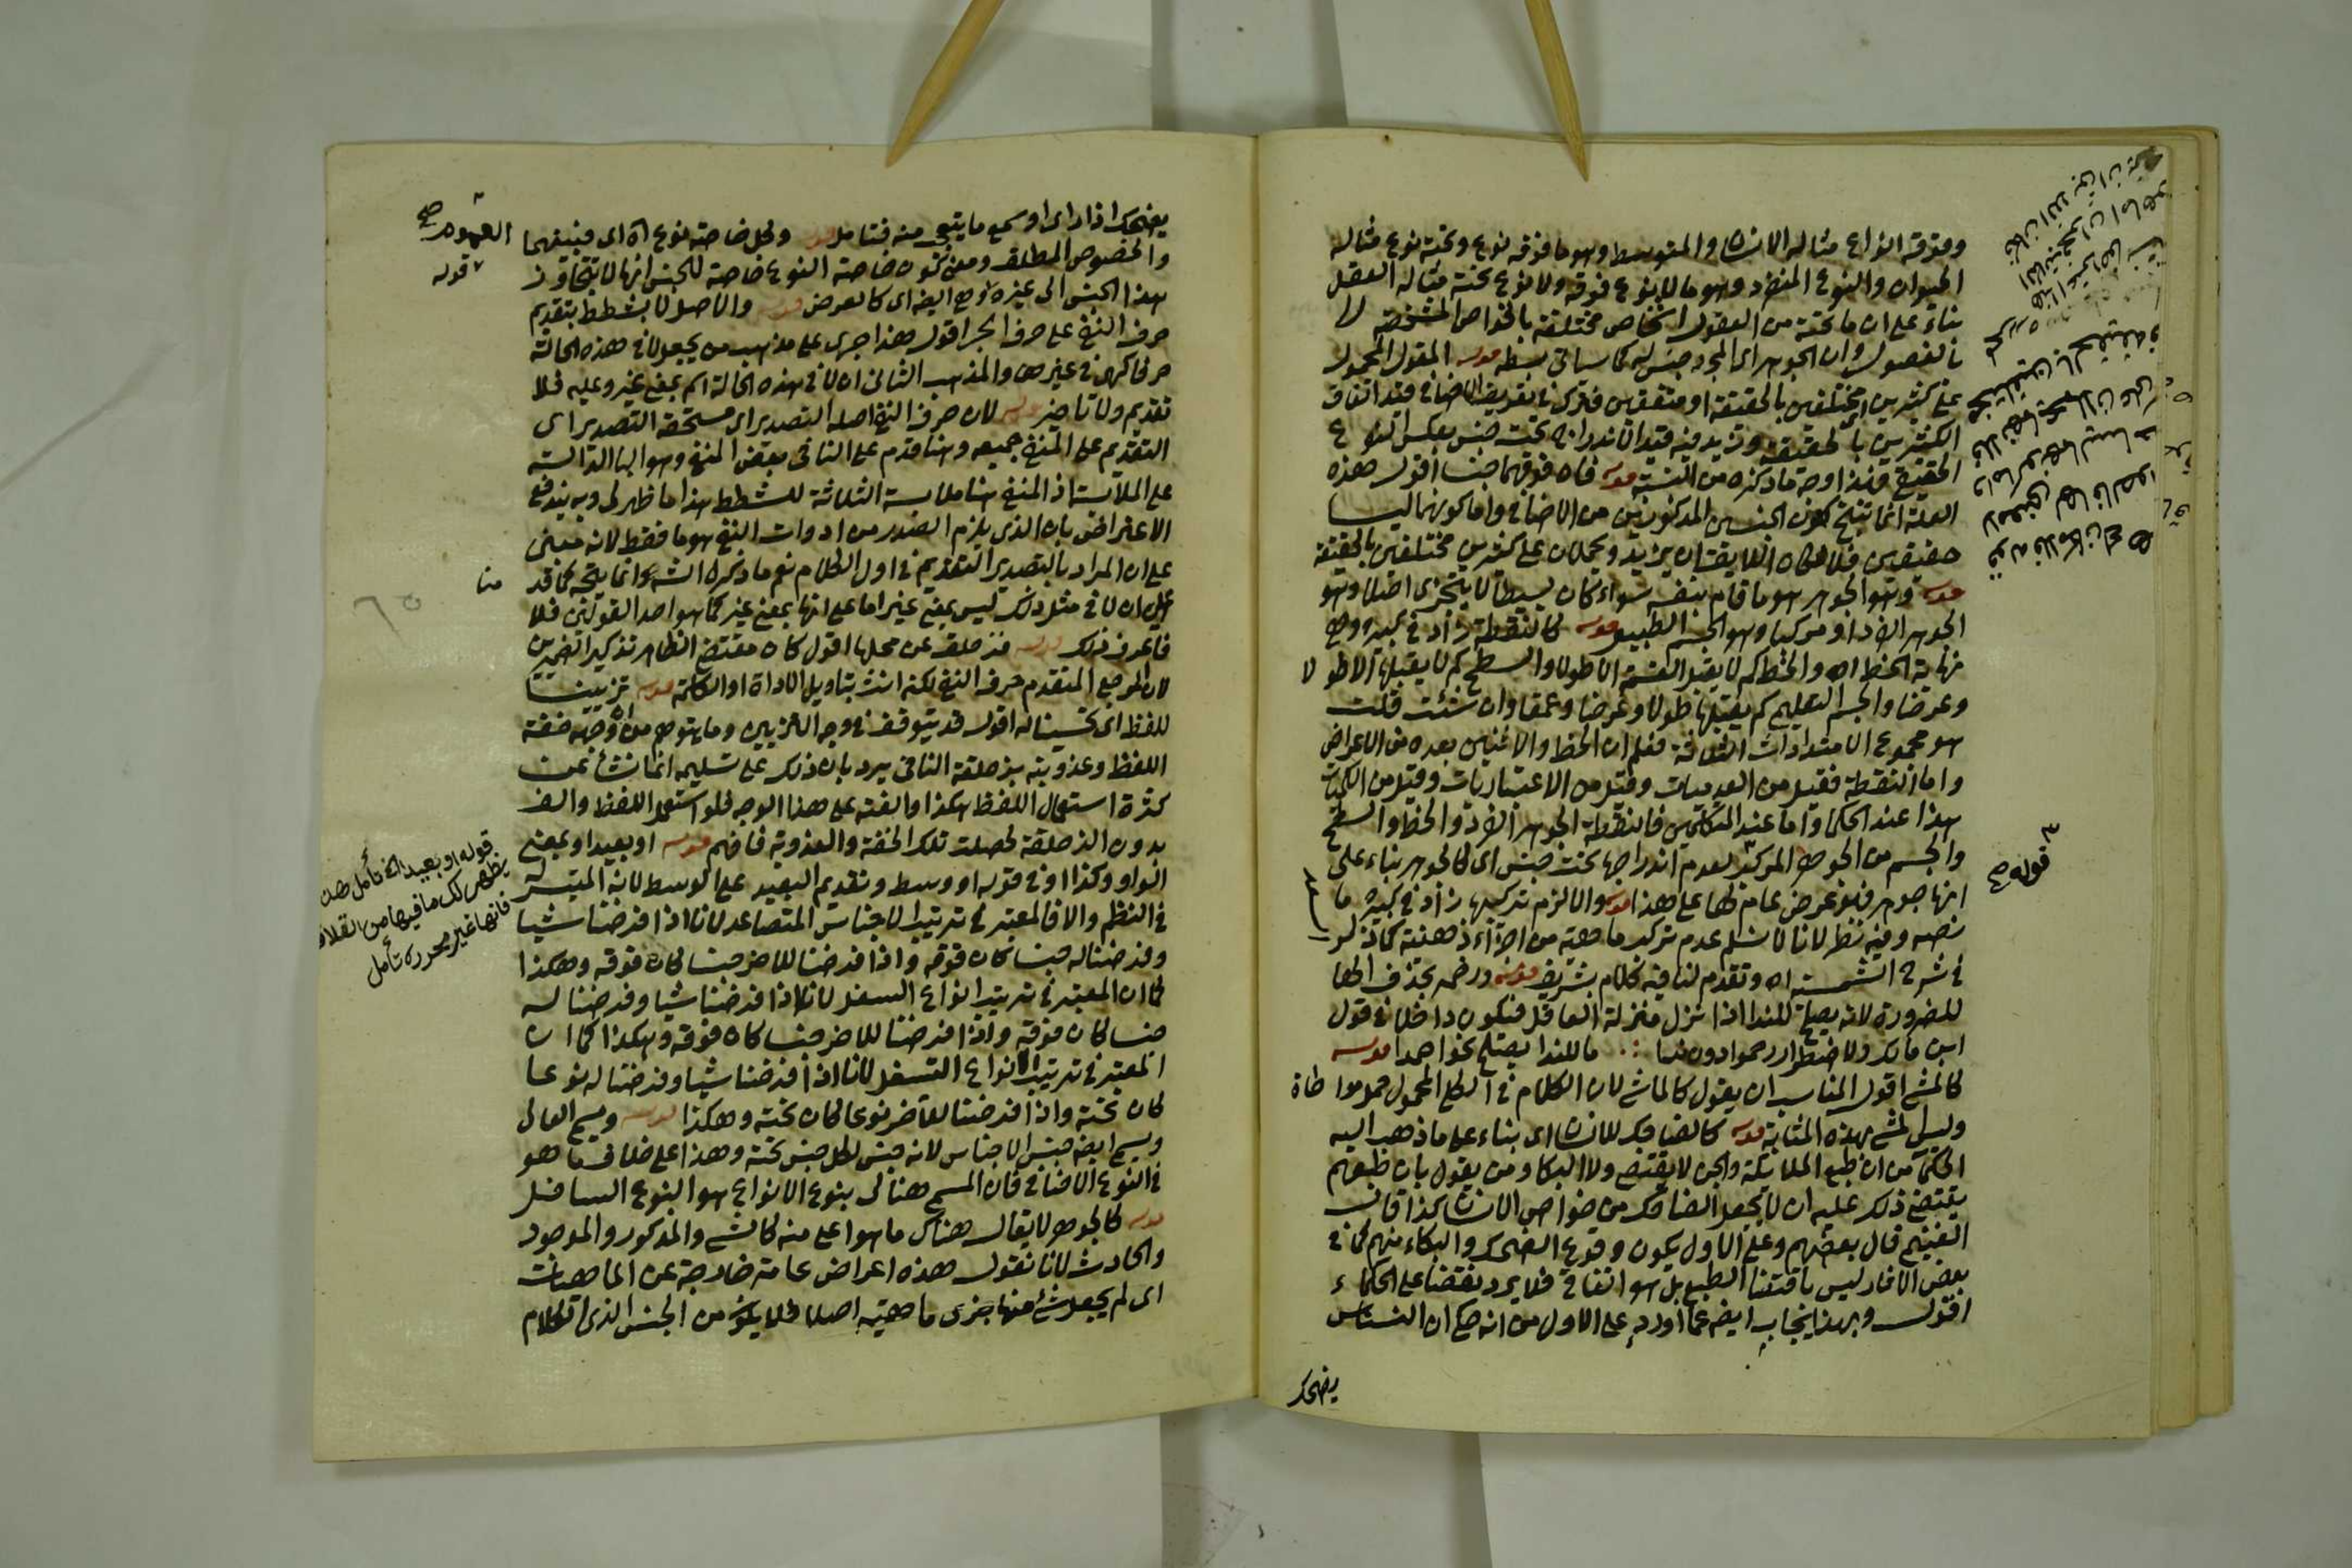 وفوقه انواع مثاله الانسان والمتوسط وهو ما فوقه نوع وتحته نوع مثاله
الحيوان والنوع المنفرد وهو ما لا نوع فوقه ولا نوع تحته مثاله العقل
بناء على ان ما تحته من العقول اشخاص مختلفة بالخواص المشخصة لا
بالفصول وان الجوهر اى المجرد جنس له كما سياتى بسطه قوله المقول المحمول
على كثيرين مختلفين بالحقيقة او متفقين فترك فى تعريف الاضافى قيد اتفاق
الكثيرين بالحقيقة وزيد فيه قيد اندراجه تحت جنس بعكس النوع
الحقيقى فهذا وجه ما ذكره من النسبة قوله فان فوقهما جنسا اقول هذه
العلة انما تنتج كون الجنسين المذكورين من الاضافى واما كونهما ليسا
حقيقيين فلا فكان اللايق ان يزيد ويحملان على كثيرين مختلفين بالحقيقة
قوله وهو الجوهر هو ما قام بنفسه سواء كان بسيطا لا يتجزى اصلا وهو
الجوهر الفرد او مركبا وهو الجسم الطبيعى قوله كالنقطة زاد فى كبيره وهى
نهاية الخط اه والخط كم لا يقبل القسمة الا طولا والسطح كم لا يقبلها الا طولا
وعرضا والجسم التعليمى كم يقبلها طولا وعرضا وعمقا وان شئت قلت
هو مجموع الامتدادات الثلاثة فعلم ان الخط والاثنين بعده من الاعراض
واما النقطة فقيل من العدميات وقيل من الاعتباريات وقيل من الكميات
هذا عند الحكما واما عند المتكلمين فالنقطة الجوهر الفرد والخط والسطح
والجسم من الجوهر المركب لعدم اندراجها تحت جنس اى كالجوهر بناء على
انها جوهر فهو عرض عام لها على هذا قوله والا لزم تركبها زاد فى كبيره ما
نصه وفيه نظر لانا لا نسلم عدم تركب ماهية من اجزاء ذهنية كما ذكر
فى شرح الشمسية اه وتقدم لنا فيه كلام شريف قوله ورخمه بحذف الها
للضرورة لانه يصلح للندا اذا نزل منزلة العاقل فيكون داخلا فى قول
ابن مالك ولاضطرار رخموا دون ندا ∴ ما للندا يصلح نحو احمدا قوله
كالمشى اقول المناسب ان يقول كالماشى لان الكلام فى الكلى المحمول حمل مواطاة
وليس المشى بهذه المثابة قوله كالضاحك للانسان اى بناء على ما ذهب اليه
الحكما من ان طبع الملائكة والجن لا يقتضى ولا البكا ومن يقول بان طبعهم
يقتضى ذلك عليه ان لا يجعل الضاحك من خواص الانسان كذا قال
الغنيمى قال بعضهم وعلى الاول يكون وقوع الضحك والبكاء منهم كما فى
بعض الاثار ليس باقتضا الطبع بل هو اتفاقى فلا يرد نقضا على الحكماء
اقول وبهذا يجاب ايضا عما اورده على الاول من انه صح ان النسناس
يضحك
قوله صح
يضحك اذا راى او سمع ما يتعجب منه فتامل قوله وكل خاصة نوع اه اى فبينهما العموم صح
والخصوص المطلق ومعنى كون خاصة النوع خاصة للجنس انها لا تتجاوز
هذا الجنس الى غيره اى العرض ايضا كالعرض قوله والاصل لا بشطط بتقديم
حرف النفى على حرف الجر اقول هذا جرى على مذهب من يجعل لا فى هذه الحالة
حرفا كهى فى غيرها والمذهب الثانى ان لا فى هذه الحالة اسم بمعنى غير وعليه فلا
تقديم ولا تاخير قوله لان حرف النفى اصله التصدير اى مستحقه التصدير اى
التقديم على المنفى جميعه وهنا قدم على الثانى بعض المنفى وهو البا الدالة
على الملابسة اذ المنفى هنا ملابسة الثلاثة للشطط هذا ما ظهر لى وبه يندفع
الاعتراض بان الذى يلزم الصدر من ادوات النفى هو ما فقط لانه مبنى
على ان المراد بالتصدير التقديم فى اول الكلام نعم ما ذكره الش انما يتجه كما قدمنا
على ان لا فى مثل ذلك ليس بمعنى غير اما على انها بمعنى غير كما هو احد القولين فلا
فاعرف ذلك قوله فزحلق عن محلها اقول كان مقتضى الظاهر تذكير الضميرين
لان المرجع المتقدم حرف النفى لكنه انث بتاويل الاداة او الكلمة قوله تزيينا
للفظ اى تحسينا له اقول قد يتوقف فى وجه التزيين وما يتوهم من ان وجهه خفة
اللفظ وعذوبته بزحلقة النافى يرد بان ذلك على تسليمه انما نشأ عن
كثرة استعمال اللفظ هكذا والفته على هذا الوجه فلو استعمل اللفظ والف
بدون الزحلقة لحصلت تلك الخفة والعذوبة فافهم قوله او بعيد او بمعنى
الواو وكذا او فى قوله او وسط وتقديم البعيد على الوسط لانه المتيسر له
فى النظم والا فالمعتبر فى ترتيب الاجناس المتصاعد لانا اذا فرضنا شيا
وفرضنا له جنسا كان فوقه واذا فرضنا للاخر جنسا كان فوقه وهكذا
كما ان المعتبر فى ترتيب انواع السفل لانا اذا فرضنا شيا وفرضنا له
جنسا كان فوقه واذا فرضنا للاخر جنسا كان فوقه وهكذا كما ان
المعتبر فى ترتيب الانواع التسفل لانا اذا فرضنا شيا وفرضنا له نوعا
كان تحته واذا فرضنا للاخر نوعا كان تحته وهكذا قوله ويسمى العالى
ويسمى ايضا جنس الاجناس لانه جنس لكل جنس تحته وهذا على خلاف ما هو
فى النوع الاضافى فان المسمى هنالك بنوع الانواع هو النوع السافل
قوله كالجوهر لا يقال هناك ما هو اعلى منه كالشى والمذكور والموجود
والحادث لانا نقول هذه اعراض عامة خارجة عن الماهيات
اى لم يجعل شئ منها جزى ماهية اصلا فلا يكون من الجنس الذى الكلام
قوله
قوله او بعيد الخ تأمل هذه
يظهر لك ما فيها من القلاقة
فانها غير محررة تأمل